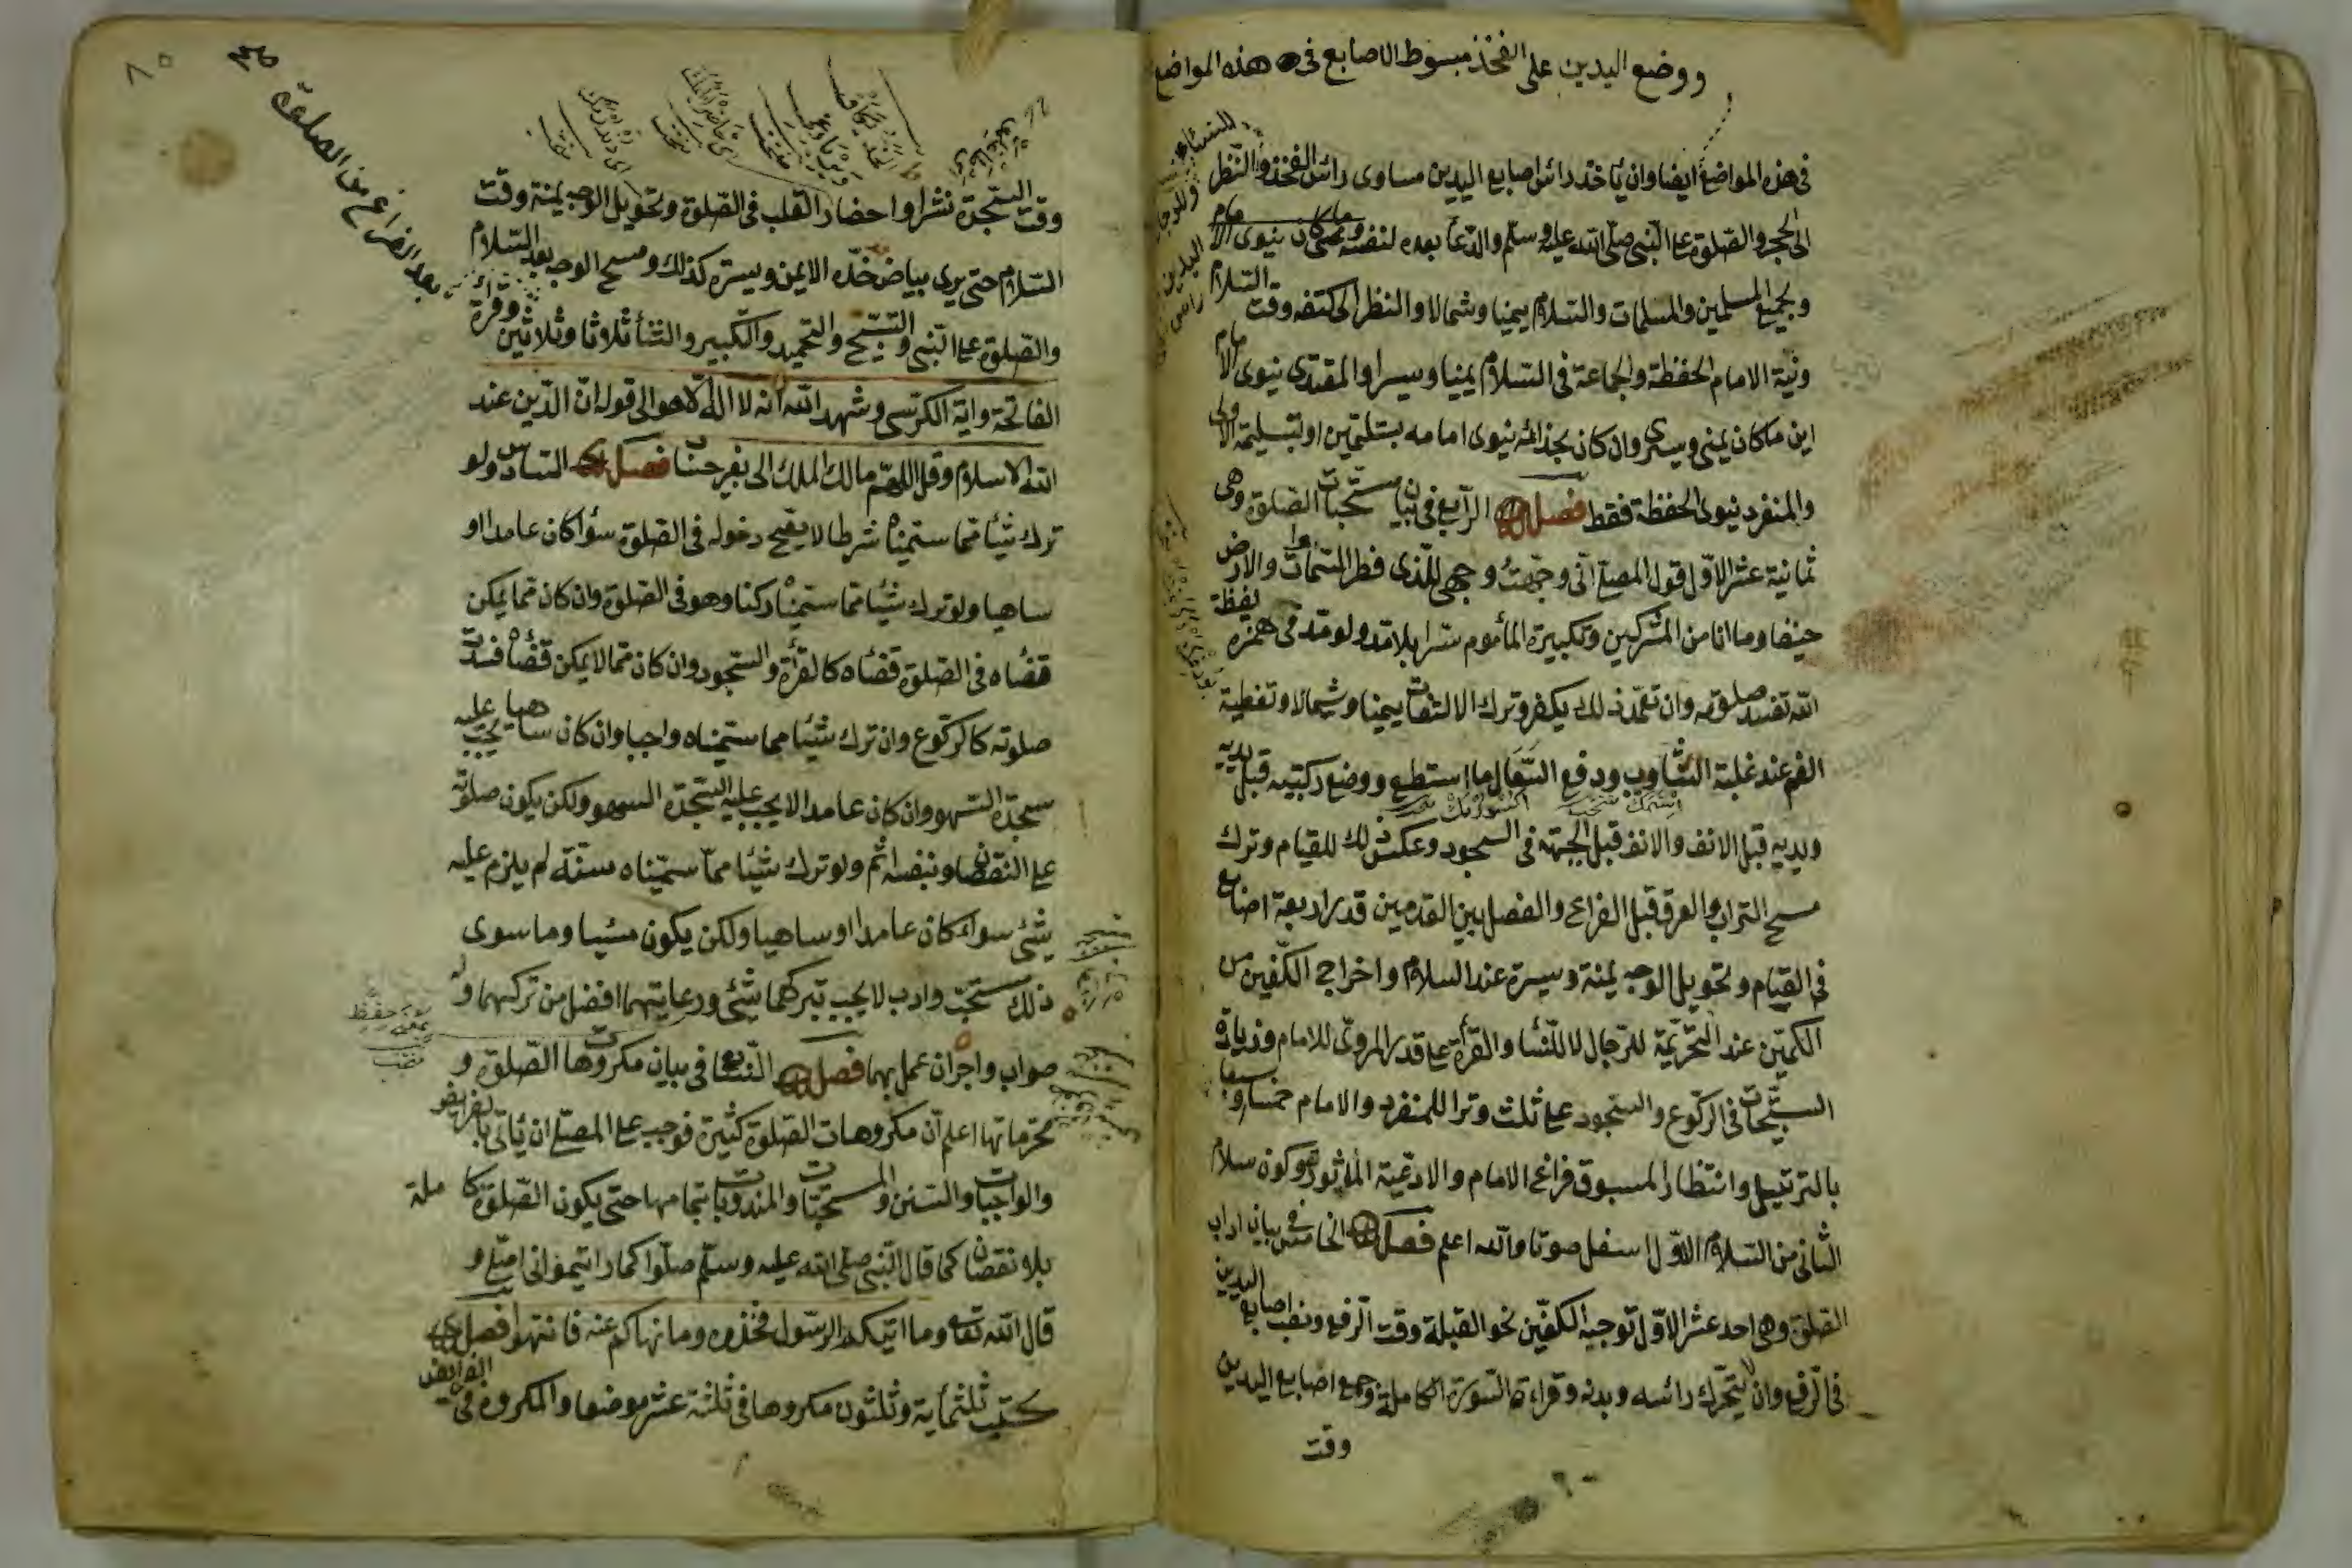 ووضع اليدين على الفخذ مبسوط الاصابع فى هذه المواضع
فى هذه المواضع ايضا وان يأخذ رائس اصابع اليدين مساوى رائس الفخذ والنظر
الى الحجر والصلوة على النبى صلى الله عليه وسلم والدعا بعده لنفسه
وبجميع المسلمين والمسلمات والسلام يمينا وشمالا والنظر الى كتفه وقت السلام
ونية الامام الحفظة والجماعة فى السلام يمينا ويسرا والمقتدى ينوى الامام
اين ماكان يمنى ويسرى وان كان بحذائه ينوى امامه بتسليمتين او بتسليمة الاولى
والمنفرد ينوى الحفظة فقط فصل الرابع فى بيان مستحبات الصلوة وهى
ثمانية عشر الاول قول المصلى انى وجهت وجهى للذى فطر السموات والارض
حنيفا وما انا من المشركين وتكبيرة المأموم سرا بلا مد ولو مد فى همزه لفظة
الله تفسد صلوته وان تعمد ذلك يكفر وترك الالتفات يمينا وشمالا وتغطية
الفم عند غلبة التثاوب ودفع السعال ما استطع ووضع ركبتيه قبل يديه
ويديه قبل الانف والانف قبل الجبهة فى السجود وعكس ذلك للقيام وترك
مسح التراب والعرق قبل الفراغ والفصل بين القدمين قدر اربعة اصابع
فى القيام وتحويل الوجه يمنة ويسرة عند السلام واخراج الكفين من
الكمين عند التحريمة للرجال لا للنسا والقرأة على قدر المروى للامام وزيادة
التسبيحات فى الركوع والسجود على ثلث وترا للمنفرد والامام خمسا وسبعا
بالترتيل وانتظار المسبوق فراغ الامام والادعية المأثورة وكون سلام
الثانى من السلام الاول اسفل صوتا والله اعلم فصل الخامس فى بيان اداب
الصلوة وهى احد عشر الاول توجيه الكفين نحو القبلة وقت الرفع ونصب اصابع اليدين
فى الرفع وان لا يتحرك رائسه وبدنه وقراءة السورة الكاملة وجمع اصابع اليدين
وقت
٨٥
بعد الفراغ من الصلوة
وقت السجدة نشرا واحضار القلب فى الصلوة وتحويل الوجه يمنة وقت
السلام حتى يرى بياض خده الايمن ويسرة كذلك ومسح الوجه بعد السلام
والصلوة على النبى والتسبيح والتحميد والتكبير والثنأ ثلاثا وثلاثين وقرة
الفاتحة واية الكرسى وشهد الله انه لا اله الا هو الى قوله ان الدين عند
الله الاسلام وقل اللهم مالك الملك الى بغير حساب فصل السادس ولو
ترك شيأ مما سميناه شرطا لا يصح دخوله فى الصلوة سؤا كان عامدا او
ساهيا ولو ترك شيئا مما سميناه ركنا وهو فى الصلوة وان كان مما يمكن
قضاه فى الصلوة قضاه كالقرأة والسجود وان كان مما لا يمكن قضاه فسدت
صلوته كالركوع وان ترك شيئا مما سميناه واجبا وان كان ساهيا يجب عليه
سجدة السهو وان كان عامدا لا يجب عليه السجدة السهو ولكن يكون صلوته
على النقصان وبنفسه اثم ولو ترك شيئا مما سميناه سنة لم يلزم عليه
شئى سواء كان عامدا او ساهيا ولكن يكون مسيا وما سوى
ذلك مستحب وادب لا يجب بتركهما شئى ورعايتهما افضل من تركهما وله
صواب واجر ان عمل بهما فصل السابع فى بيان مكروهات الصلوة و
محرماتها اعلم ان مكروهات الصلوة كثيرة فوجب على المصلى ان يأتى بالفرايض
والواجبات والسنن والمستحبات والمندوبات بتمامها حتى يكون الصلوة كاملة
بلا نقصان كما قال النبى صلى الله عليه وسلم صلوا كما رايتمونى اصلى و
قال الله تعالى وما اتيكم الرسول فخذوه وما نهاكم عنه فانتهوا فصل
كتب ثلثمأية وثلثون مكروها فى ثلثة عشر موضعا والمكروه فى الفرايض